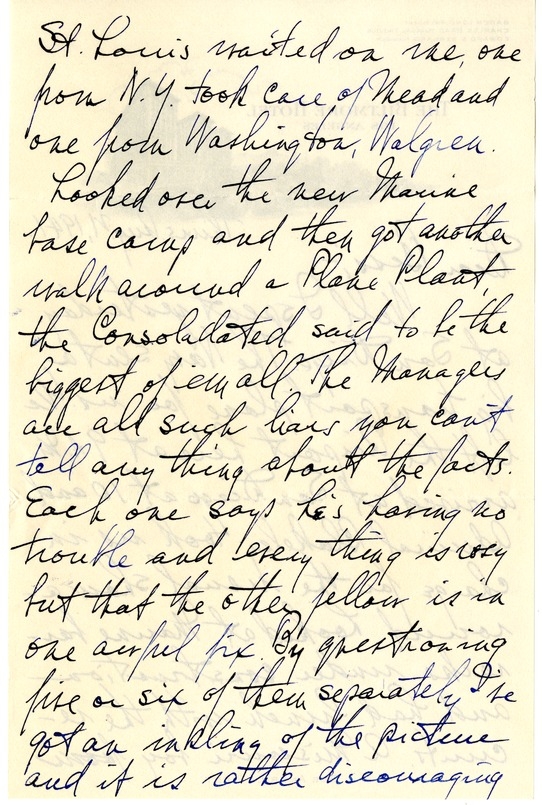 St. Louis waited on me, one
from N.Y. took care of Mead and
one from Washington, Walgren.
Looked over the new Marine
base camp and then got another
walk around a Plane Plant,
the Consoladated said to be the
biggest of 'em all. The Managers
are all such liars you can't
tell any thing about the facts.
Each one says he's having no
trouble and every thing is rosy
but that the other fellow is in
one awful fix. By questioning
five or six of them separately I've
got an inkling of the picture
and it is rather discouraging